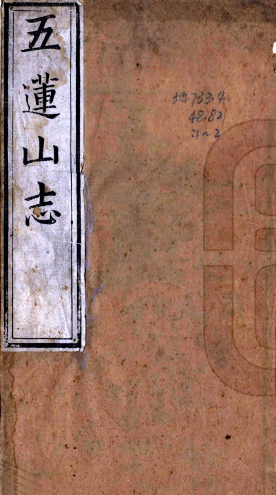 五蓮山志
地733.4
48.82